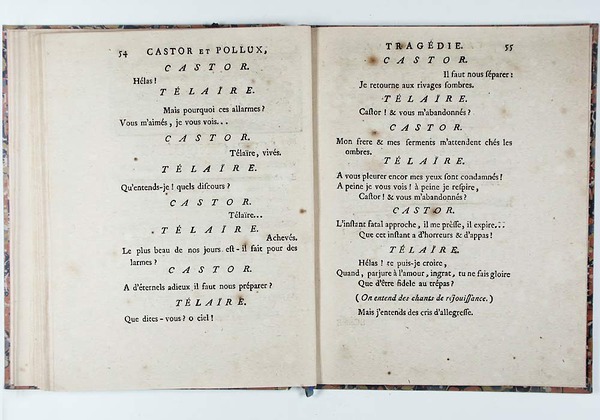 54 CASTOR ET POLLUX,
CASTOR.
Hélas !
TÉLAIRE.
Mais pourquoi ces allarmes ?
Vous m'aimés, je vous vois...
CASTOR.
Télaïre, vivés.
TÉLAIRE.
Qu'entends-je ! quels discours ?
CASTOR.
Télaïre...
TÉLAIRE.
Achevés.
Le plus beau de nos jours est-il fait pour des
larmes ?
CASTOR.
A d'éternels adieux il faut nous préparer ?
TÉLAIRE.
Que dites-vous ? o ciel !
TRAGÉDIE. 55
CASTOR.
Il faut nous séparer :
Je retourne aux rivages sombres.
TÉLAIRE.
Castor ! & vous m'abandonnés ?
CASTOR.
Mon frere & mes serments m'attendent chés les
ombres.
TÉLAIRE.
A vous pleurer encor mes yeux sont condamnés !
A peine je vous vois ! à peine je respire,
Castor ! & vous m'abandonnés ?
CASTOR.
L'instant fatal approche, il me prèsse, il expire...
Que cet instant a d'horreurs & d'appas !
TÉLAIRE.
Hélas ! te puis-je croire,
Quand, parjure à l'amour, ingrat, tu ne fais gloire
Que d'être fidele au trépas ?
(On entend des chants de réjouissance.)
Mais j'entends des cris d'allegresse.